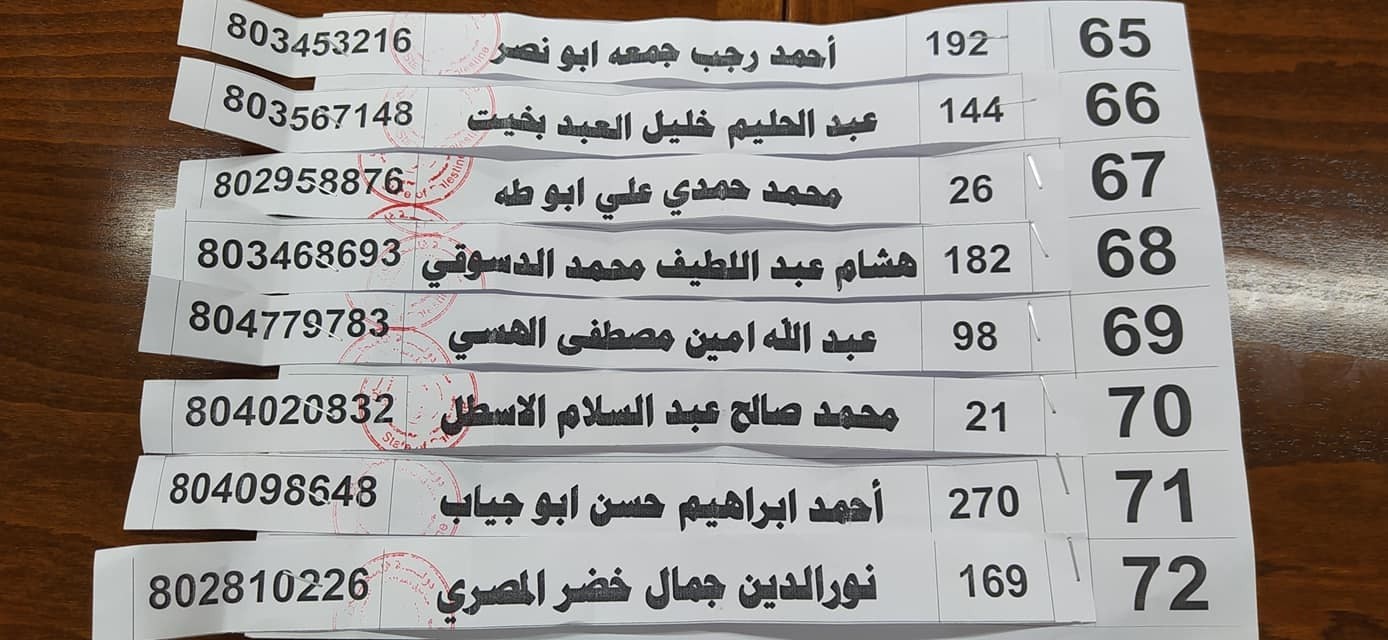 65 192 أحمد رجب جمعه ابو نصر 803453216
66 144 عبد الحليم خليل العبد بخيت 803567148
67 26 محمد حمدي علي ابو طه 802958876
68 182 هشام عبد اللطيف محمد الدسوقي 803468693
69 98 عبد الله امين مصطفى الهسي 804779783
70 21 محمد صالح عبد السلام الاسطل 804020832
71 270 أحمد ابراهيم حسن ابو جياب 804098648
72 169 نورالدين جمال خضر المصري 802810226